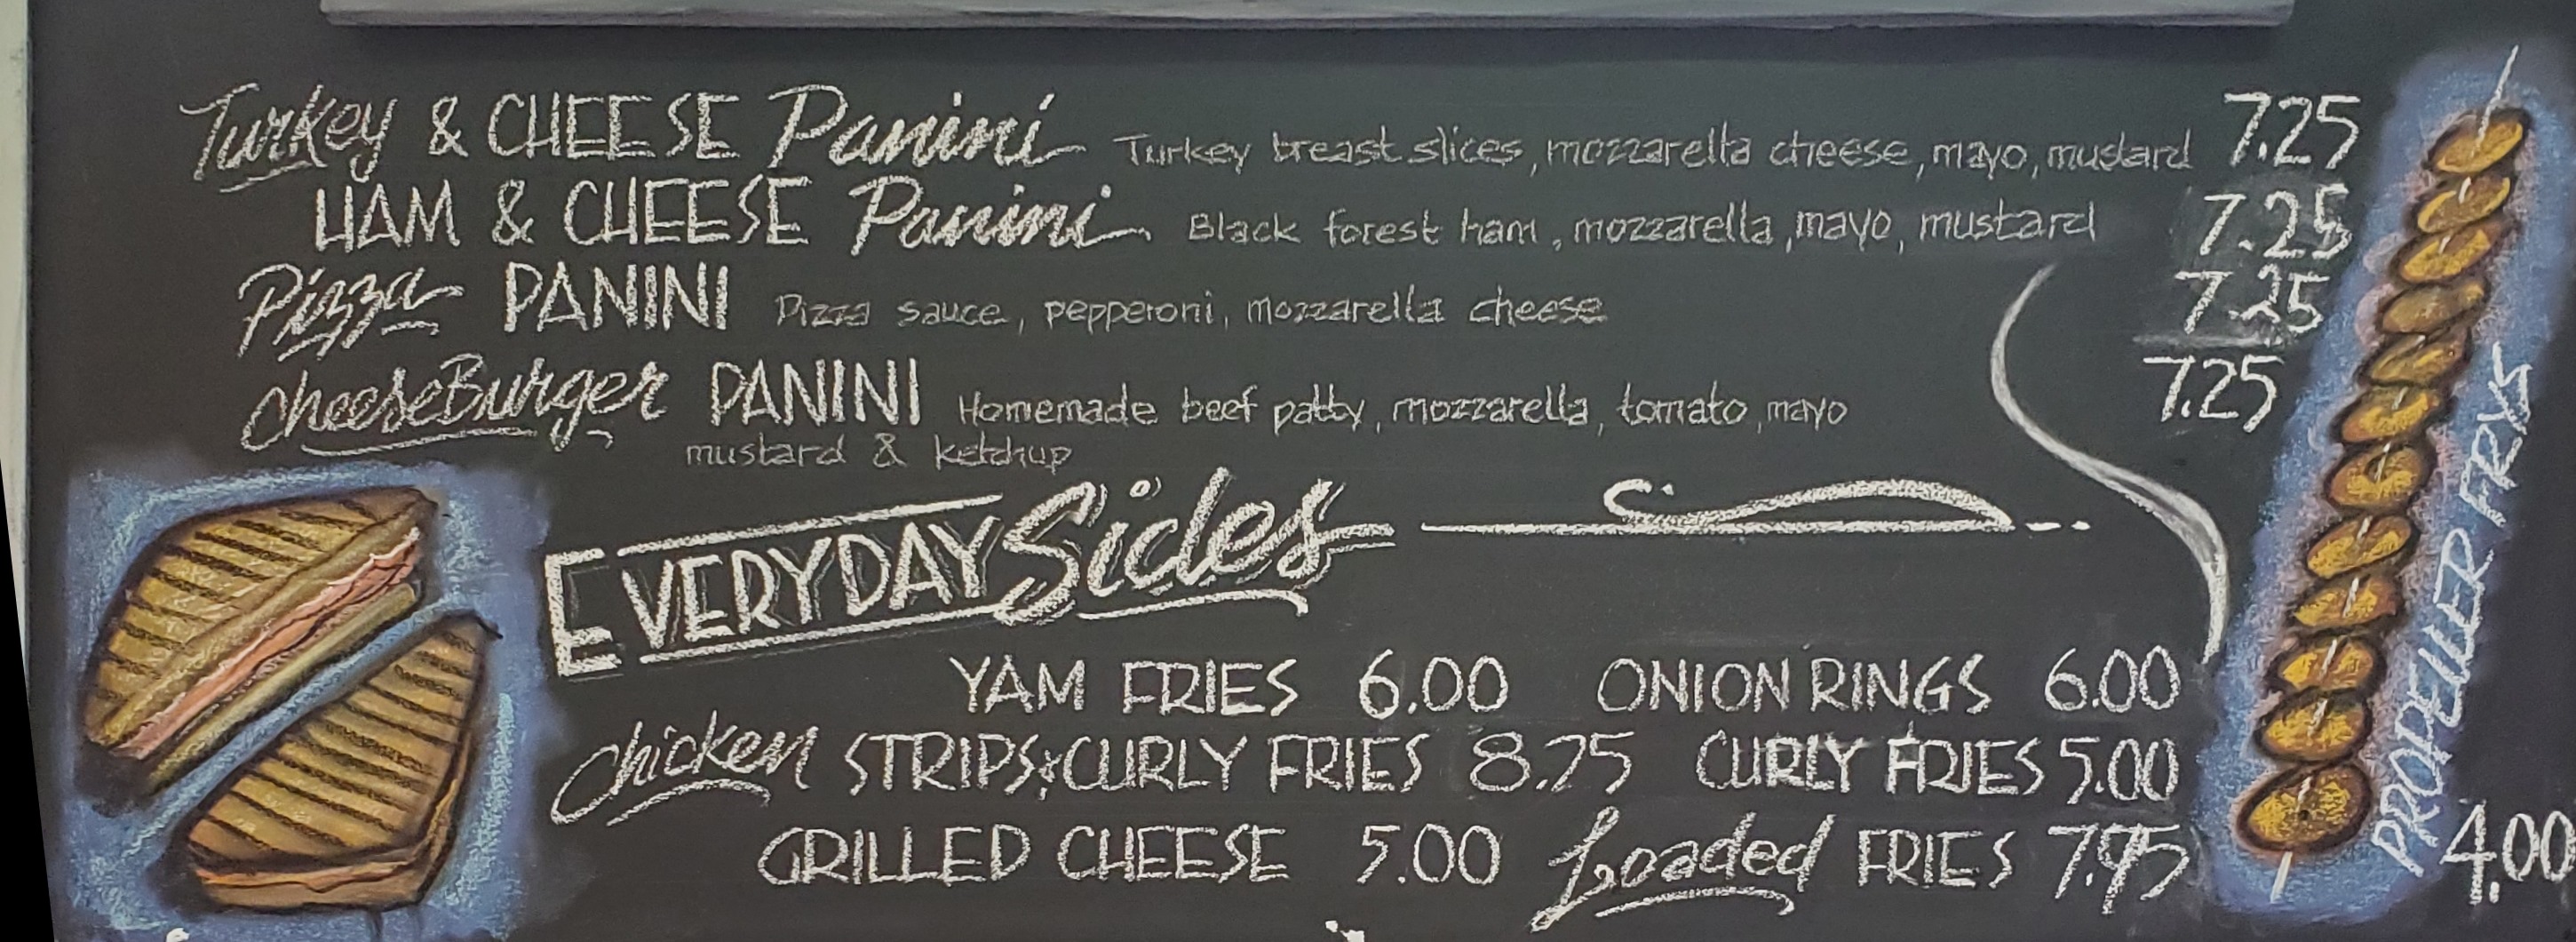 Turkey & CHEESE Panini Turkey breast slices, mozzarella cheese, mayo, mustard 7.25
HAM & CHEESE Panini Black forest ham, mozzarella, mayo, mustard 7.25
Pizza PANINI Pizza sauce, pepperoni, mozzarella cheese 7.25
cheeseBurger PANINI Homemade beef patty, mozzarella, tomato, mayo 7.25
mustard & ketchup
EVERYDAY Sides
YAM FRIES 6.00 ONION RINGS 6.00
chicken STRIPS & CURLY FRIES 8.75 CURLY FRIES 5.00
GRILLED CHEESE 5.00 Loaded FRIES 7.95
PROPELLER FRYS 4.00